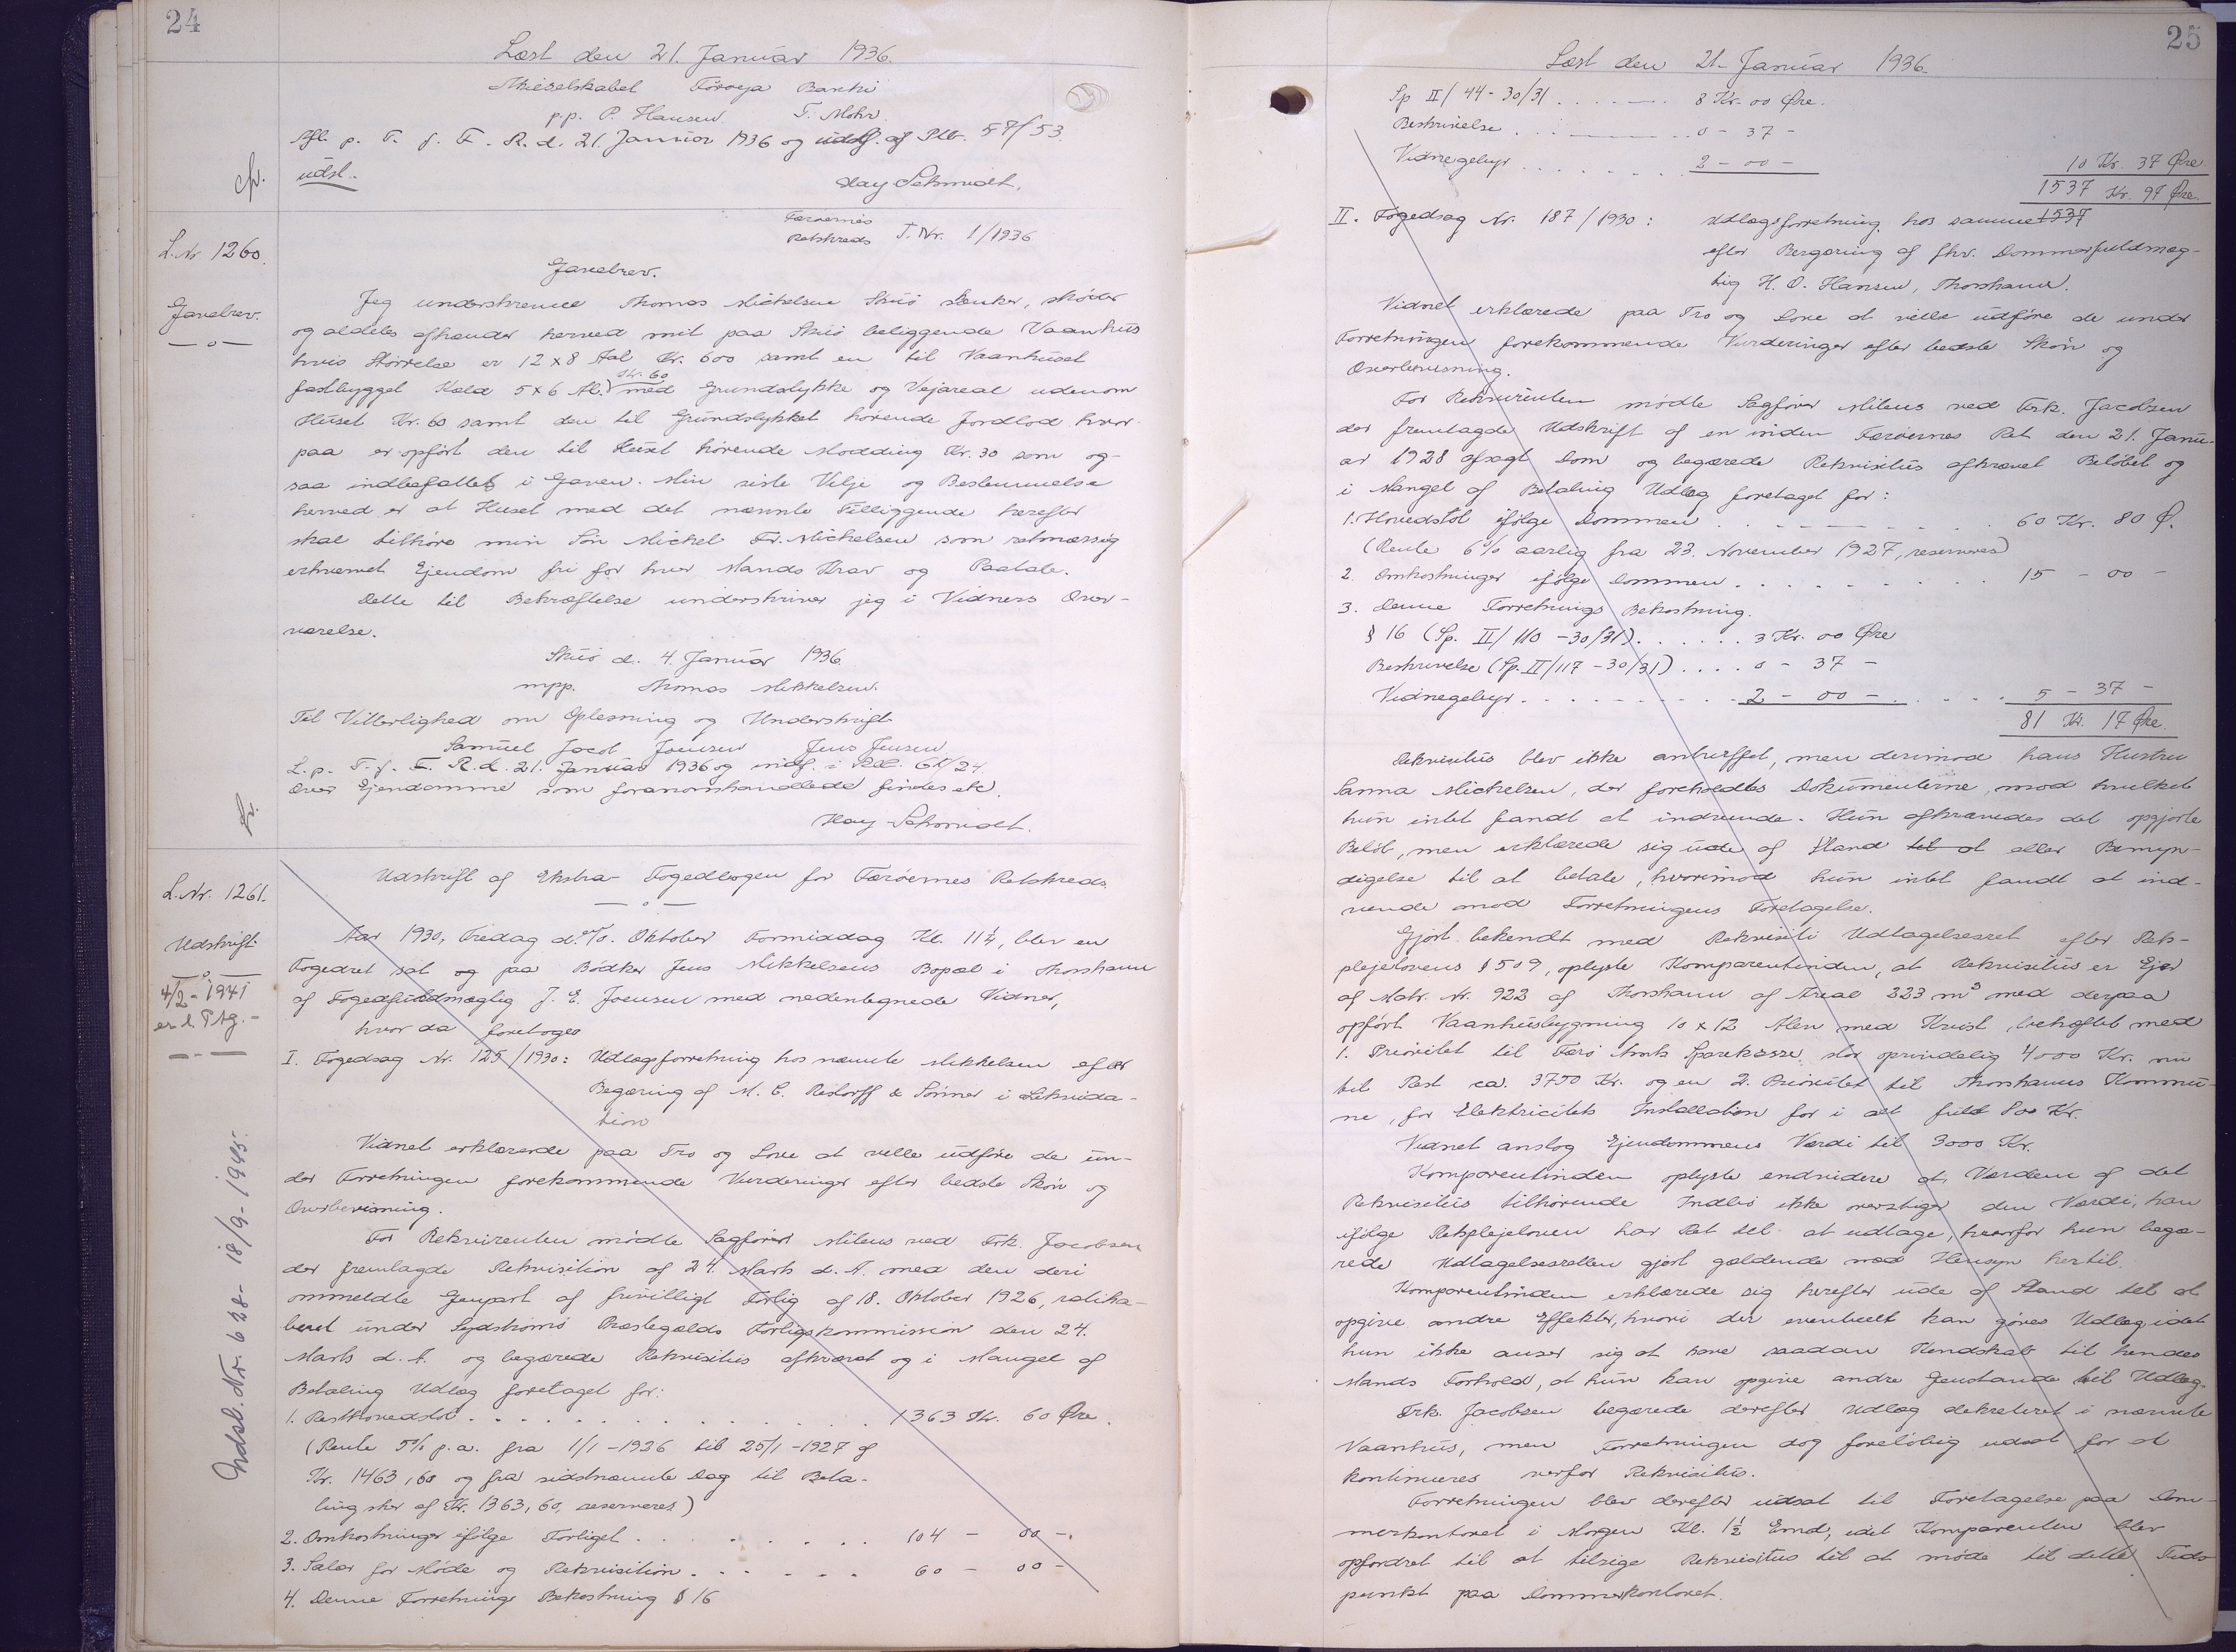 24
Læst den 21. Januar 1936.
Aktieselskabet Föroya Banki
p.p. P. Hansen T. Mohr
Afl. p. T. f. F. R. d. 21. Januar 1936 og udsl. af Pltr. 57/53.
udsl.
Hay Schmidt.
Færøernes
Retskreds J. Nr. 1/1936
L. Nr. 1260.
Gavebrev.
—o—
Gavebrev.
Jeg underskrevne Thomas Michelsen Skuö skenker, skøder
og aldeles afhænder herved mit paa Skuö beliggende Vaanhus
hvis Størrelse er 12 x 8 Aal Kr. 600 samt en til Vaanhuset
fastbygget Kæld 5 x 6 Al. Kr. 60 med Grundstykke og Vejareal udenom
Huset Kr. 60 samt den til Grundstykket hörende Jordlod hvor-
paa er opfört den til Huset hörende Modding Kr. 30 som og-
saa indbefattes i Gaven. Min sidste Vilje og Bestemmelse
herved er at Huset med det nævnte Tilliggende herefter
skal tilhöre min Sön Michel Fr. Michelsen som retmæssig
erhvervet Ejendom fri for hver Mands Krav og Paatale.
Dette til Bekræftelse underskriver jeg i Vidners Over-
værelse.
Skuö d. 4. Januar 1936
mpp. Thomas Mikkelsen.
Til Vitterlighed om Oplæsning og Underskrift
Samuel Jacob Joensen Jens Jensen
L. p. T. f. F. R. d. 21. Januar 1936 og indf. i Rll. 61/24.
Over Ejendomme som foranomhandlede findes ek.
Hay Schmidt.
L. Nr. 1261.
Udskrift
—o—
4/2 - 1941
Indsl. Nr. 628 - 18/9 - 1945.
Udskrift af Ekstra- Fogedbogen for Færöernes Retskreds
—o—
Aar 1930, Fredag d. Oktober Formiddag Kl. 11¼, blev en
Fogedret sat og paa Bödker Jens Mikkelsens Bopæl i Thorshavn
af Fogedfuldmægtig J. E. Joensen med nedentegnede Vidner,
hvor da foretoges
I. Fogedsag Nr. 125/1930: Udlægsforretning hos nævnte Mikkelsen efter
Begæring af M. C. Restorff & Sönner i Likvida-
tion
Vidnet erklærede paa Tro og Love at ville udföre de un-
der Forretningen forekommende Vurderinger efter bedste Skön og
Overbevisning.
For Rekvirenten mödte Sagförer Milens ved Frk. Jacobsen
der fremlagde Rekvisition af 24. Marts d. A. med den deri
ommeldte Genpart af frivilligt Forlig af 18. Oktober 1926, ratiha-
beret under Sydströmö Præstegælds Forligskommission den 24.
Marts d. A. og begærede Rekvisitus afkrævet og i Mangel af
Betaling Udlæg foretaget for:
1. Resthovedstol . . . . . . . . . . 1363 Kr. 60 Øre.
(Rente 5% p.a. fra 1/1 - 1926 til 25/1 - 1927 af
Kr. 1463,60 og fra sidstnævnte Dag til Beta-
ling sker af Kr. 1363,60, reserveres)
2. Omkostninger ifölge Forliget . . . . . . . . 104 - 00 -
3. Salær for Möde og Rekvisition . . . . . . 60 - 00 -
4. Denne Forretnings Bekostning § 16
25
Læst den 21. Januar 1936.
Sp II/44 - 30/31 . . . . . . 8 Kr. 00 Øre.
Beskrivelse . . . . . . 0 - 37 -
Vidnegebyr . . . . . . . 2 - 00 -
10 Kr. 37 Øre.
1537 Kr. 97 Øre
II. Fogedsag Nr. 187/1930: Udlægsforretning hos samme 1537
efter Begæring af fhv. Dommerfuldmæg-
tig H. O. Hansen, Thorshavn.
Vidnet erklærede paa Tro og Love at ville udföre de under
Forretningen forekommende Vurderinger efter bedste Skön og
Overbevisning.
For Rekvirenten mödte Sagförer Milens ved Frk. Jacobsen
der fremlagde Udskrift af en inden Færöernes Ret den 21. Janu-
ar 1928 afsagt Dom og begærede Rekvisitus afkrævet Belöbet og
i Mangel af Betaling Udlæg foretaget for:
1. Hovedstol ifölge Dommen . . . . . . . . 60 Kr. 80 Ø.
(Rente 6% aarlig fra 23. November 1927, reserveres)
2. Omkostninger ifölge Dommen . . . . . . . . 15 - 00 -
3. Denne Forretnings Bekostning.
§ 16 (Sp. II/110 - 30/31) . . . . . . 3 Kr. 00 Øre
Beskrivelse (Sp. II/117 - 30/31) . . . . 0 - 37 -
Vidnegebyr . . . . . . . . . 2 - 00 - . . . . 5 - 37 -
81 Kr. 17 Øre.
Rekvisitus blev ikke antruffet, men derimod hans Hustru
Sanna Michelsen, der foreholdtes Dokumenterne, mod hvilket
hun intet fandt at indvende. Hun afkrævedes det opgjorte
Belöb, men erklærede sig ude af Stand til at eller Bemyn-
digelse til at betale, hvorimod hun intet fandt at ind-
vende mod Forretningens Foretagelse.
Gjort bekendt med Rekvisiti Udtagelsesret efter Rets-
plejelovens § 509, oplyste Komparentinden, at Rekvisitus er Ejer
af Matr. Nr. 922 af Thorshavn af Areal 223 m² med derpaa
opfört Vaanhusbygning 10 x 12 Alen med Kvist, behæftet med
1. Prioritet til Færö Amts Sparekasse stor oprindelig 4000 Kr. nu
til Rest ca. 3750 Kr. og en 2. Prioritet til Thorshavns Kommu-
ne, for Elektricitets Installation for i alt fuld 800 Kr.
Vidnet anslog Ejendommens Værdi til 3000 Kr.
Komparentinden oplyste endvidere at Værdien af det
Rekvisitus tilhörende Indbo ikke overstiger den Værdi, han
ifölge Retsplejeloven har Ret til at udtage, hvorfor hun begæ-
rede Udtagelsesretten gjort gældende med Hensyn hertil.
Komparentinden erklærede sig herefter ude af Stand til at
opgive andre Effekter, hvori der eventuelt kan göres Udlæg, idet
hun ikke anser sig at have saadan Kendskab til hendes
Mands Forhold, at hun kan opgive andre Genstande til Udlæg.
Frk. Jacobsen begærede derefter Udlæg dekreteret i nævnte
Vaanhus, men Forretningen dog forelöbig udsat for at
kontinueres overfor Rekvisitus.
Forretningen blev derefter udsat til Foretagelse paa Dom-
merkontoret i Morgen Kl. 1½ Emd, idet Komparenten blev
opfordret til at tilsige Rekvisitus til at möde til dette Tids-
punkt paa Dommerkontoret.